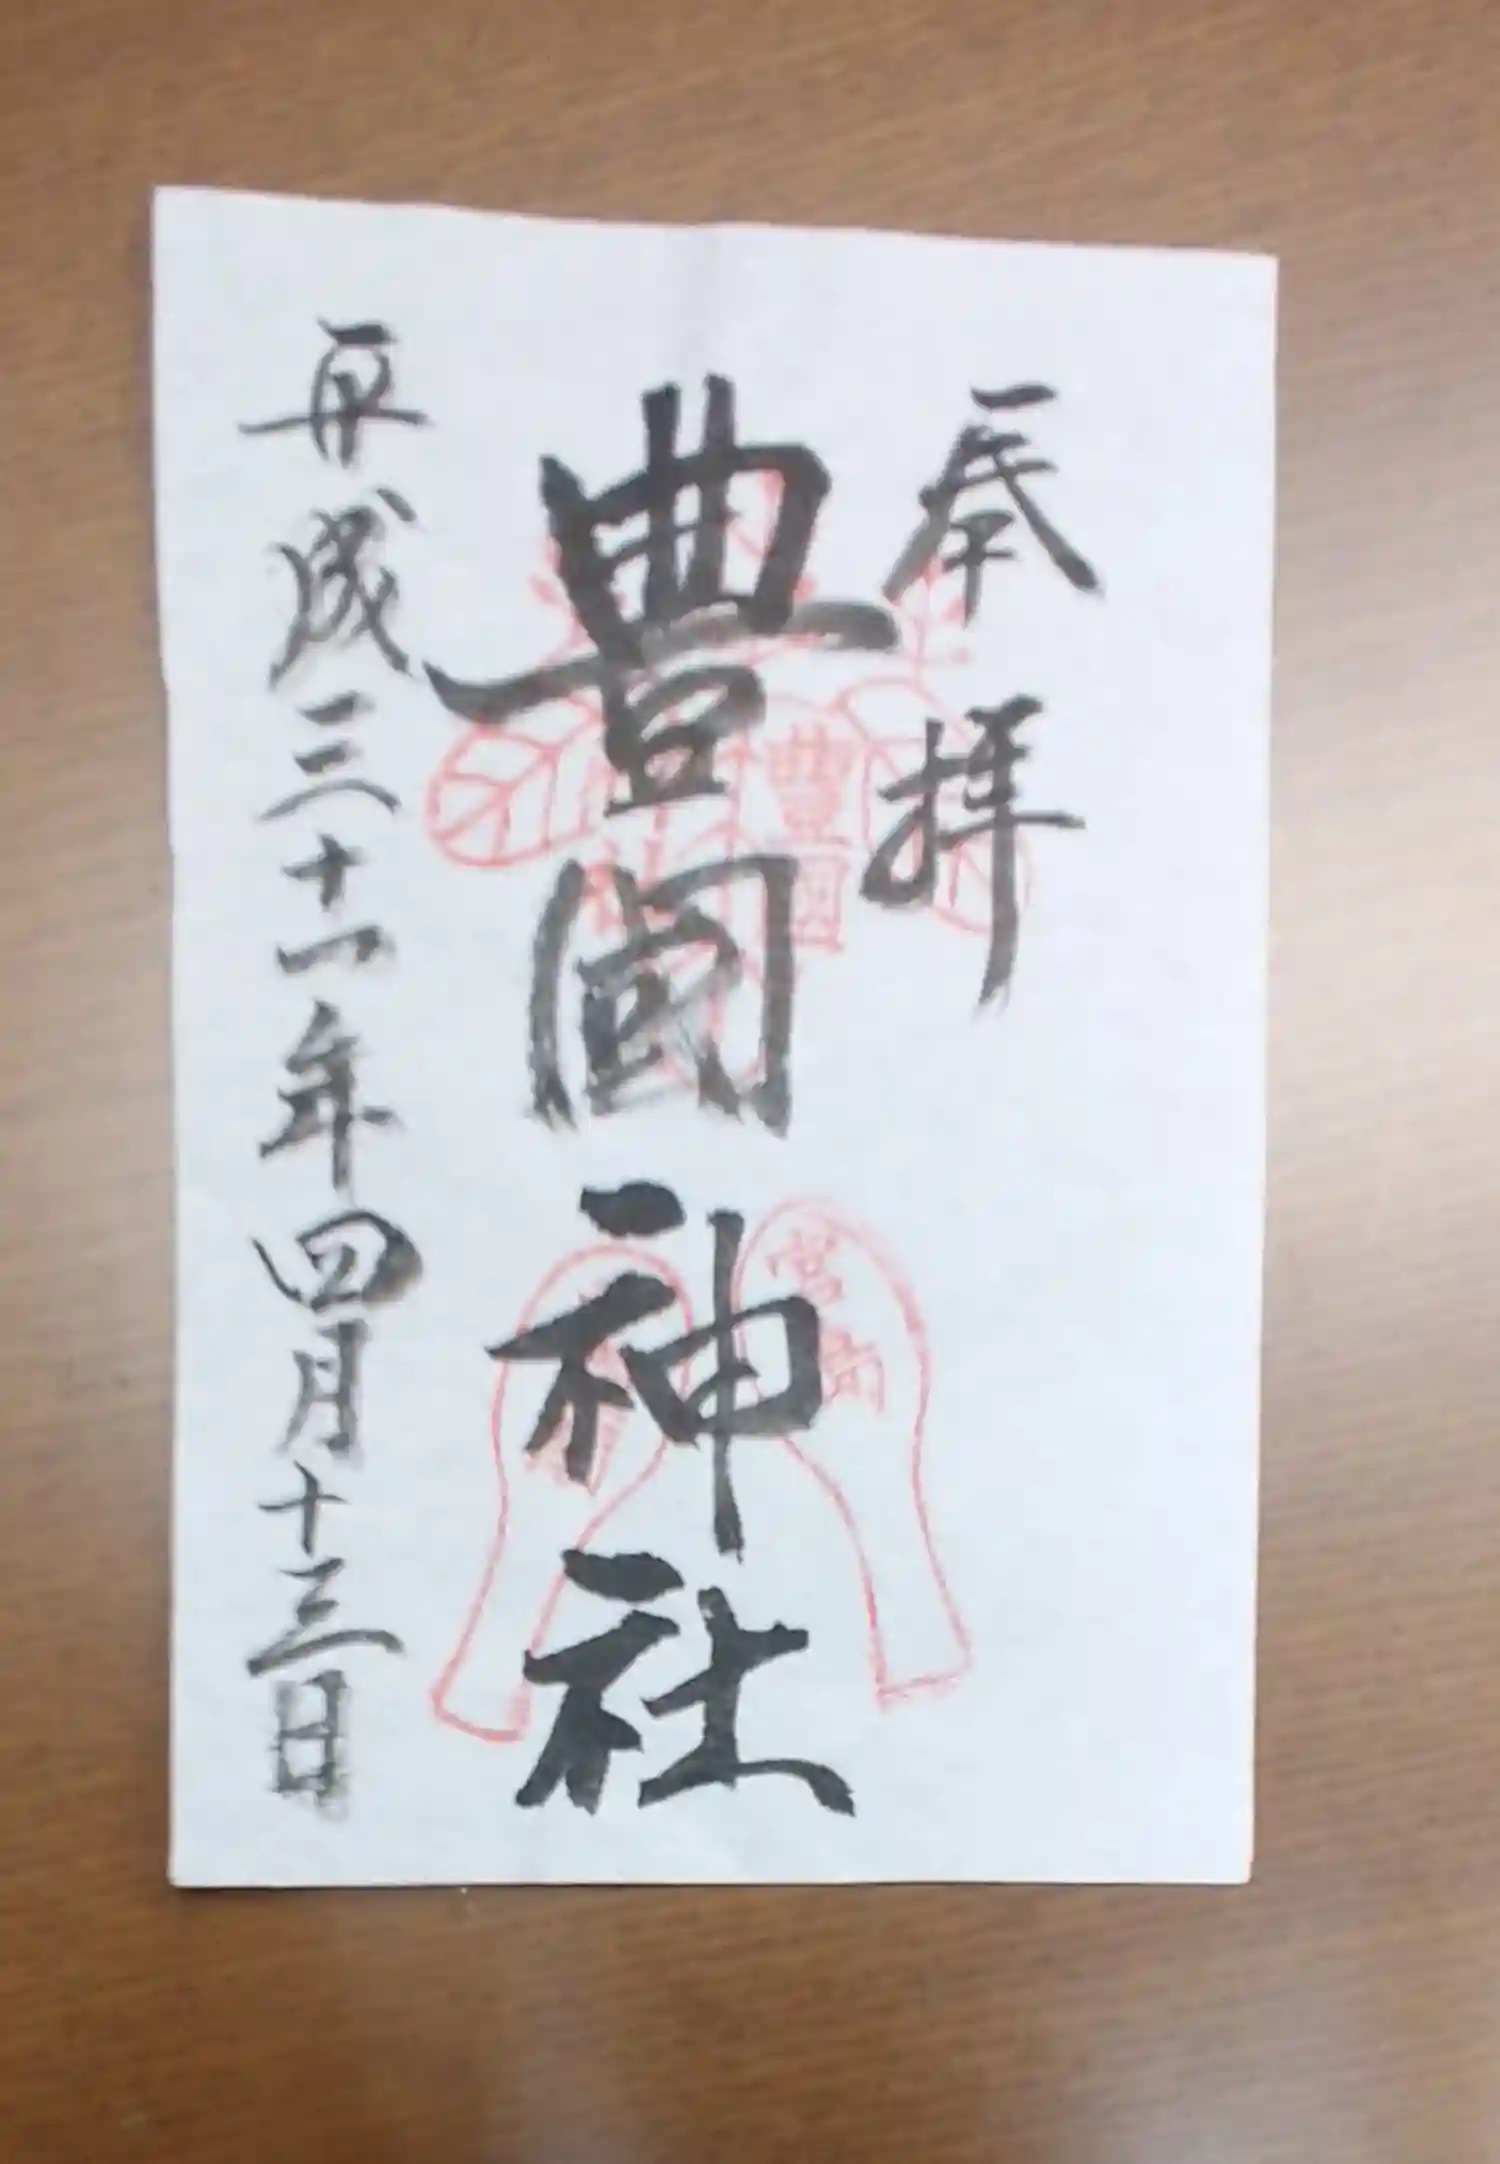 奉拝
豊國神社
平成三十一年四月十三日
豊國
神社
宮島